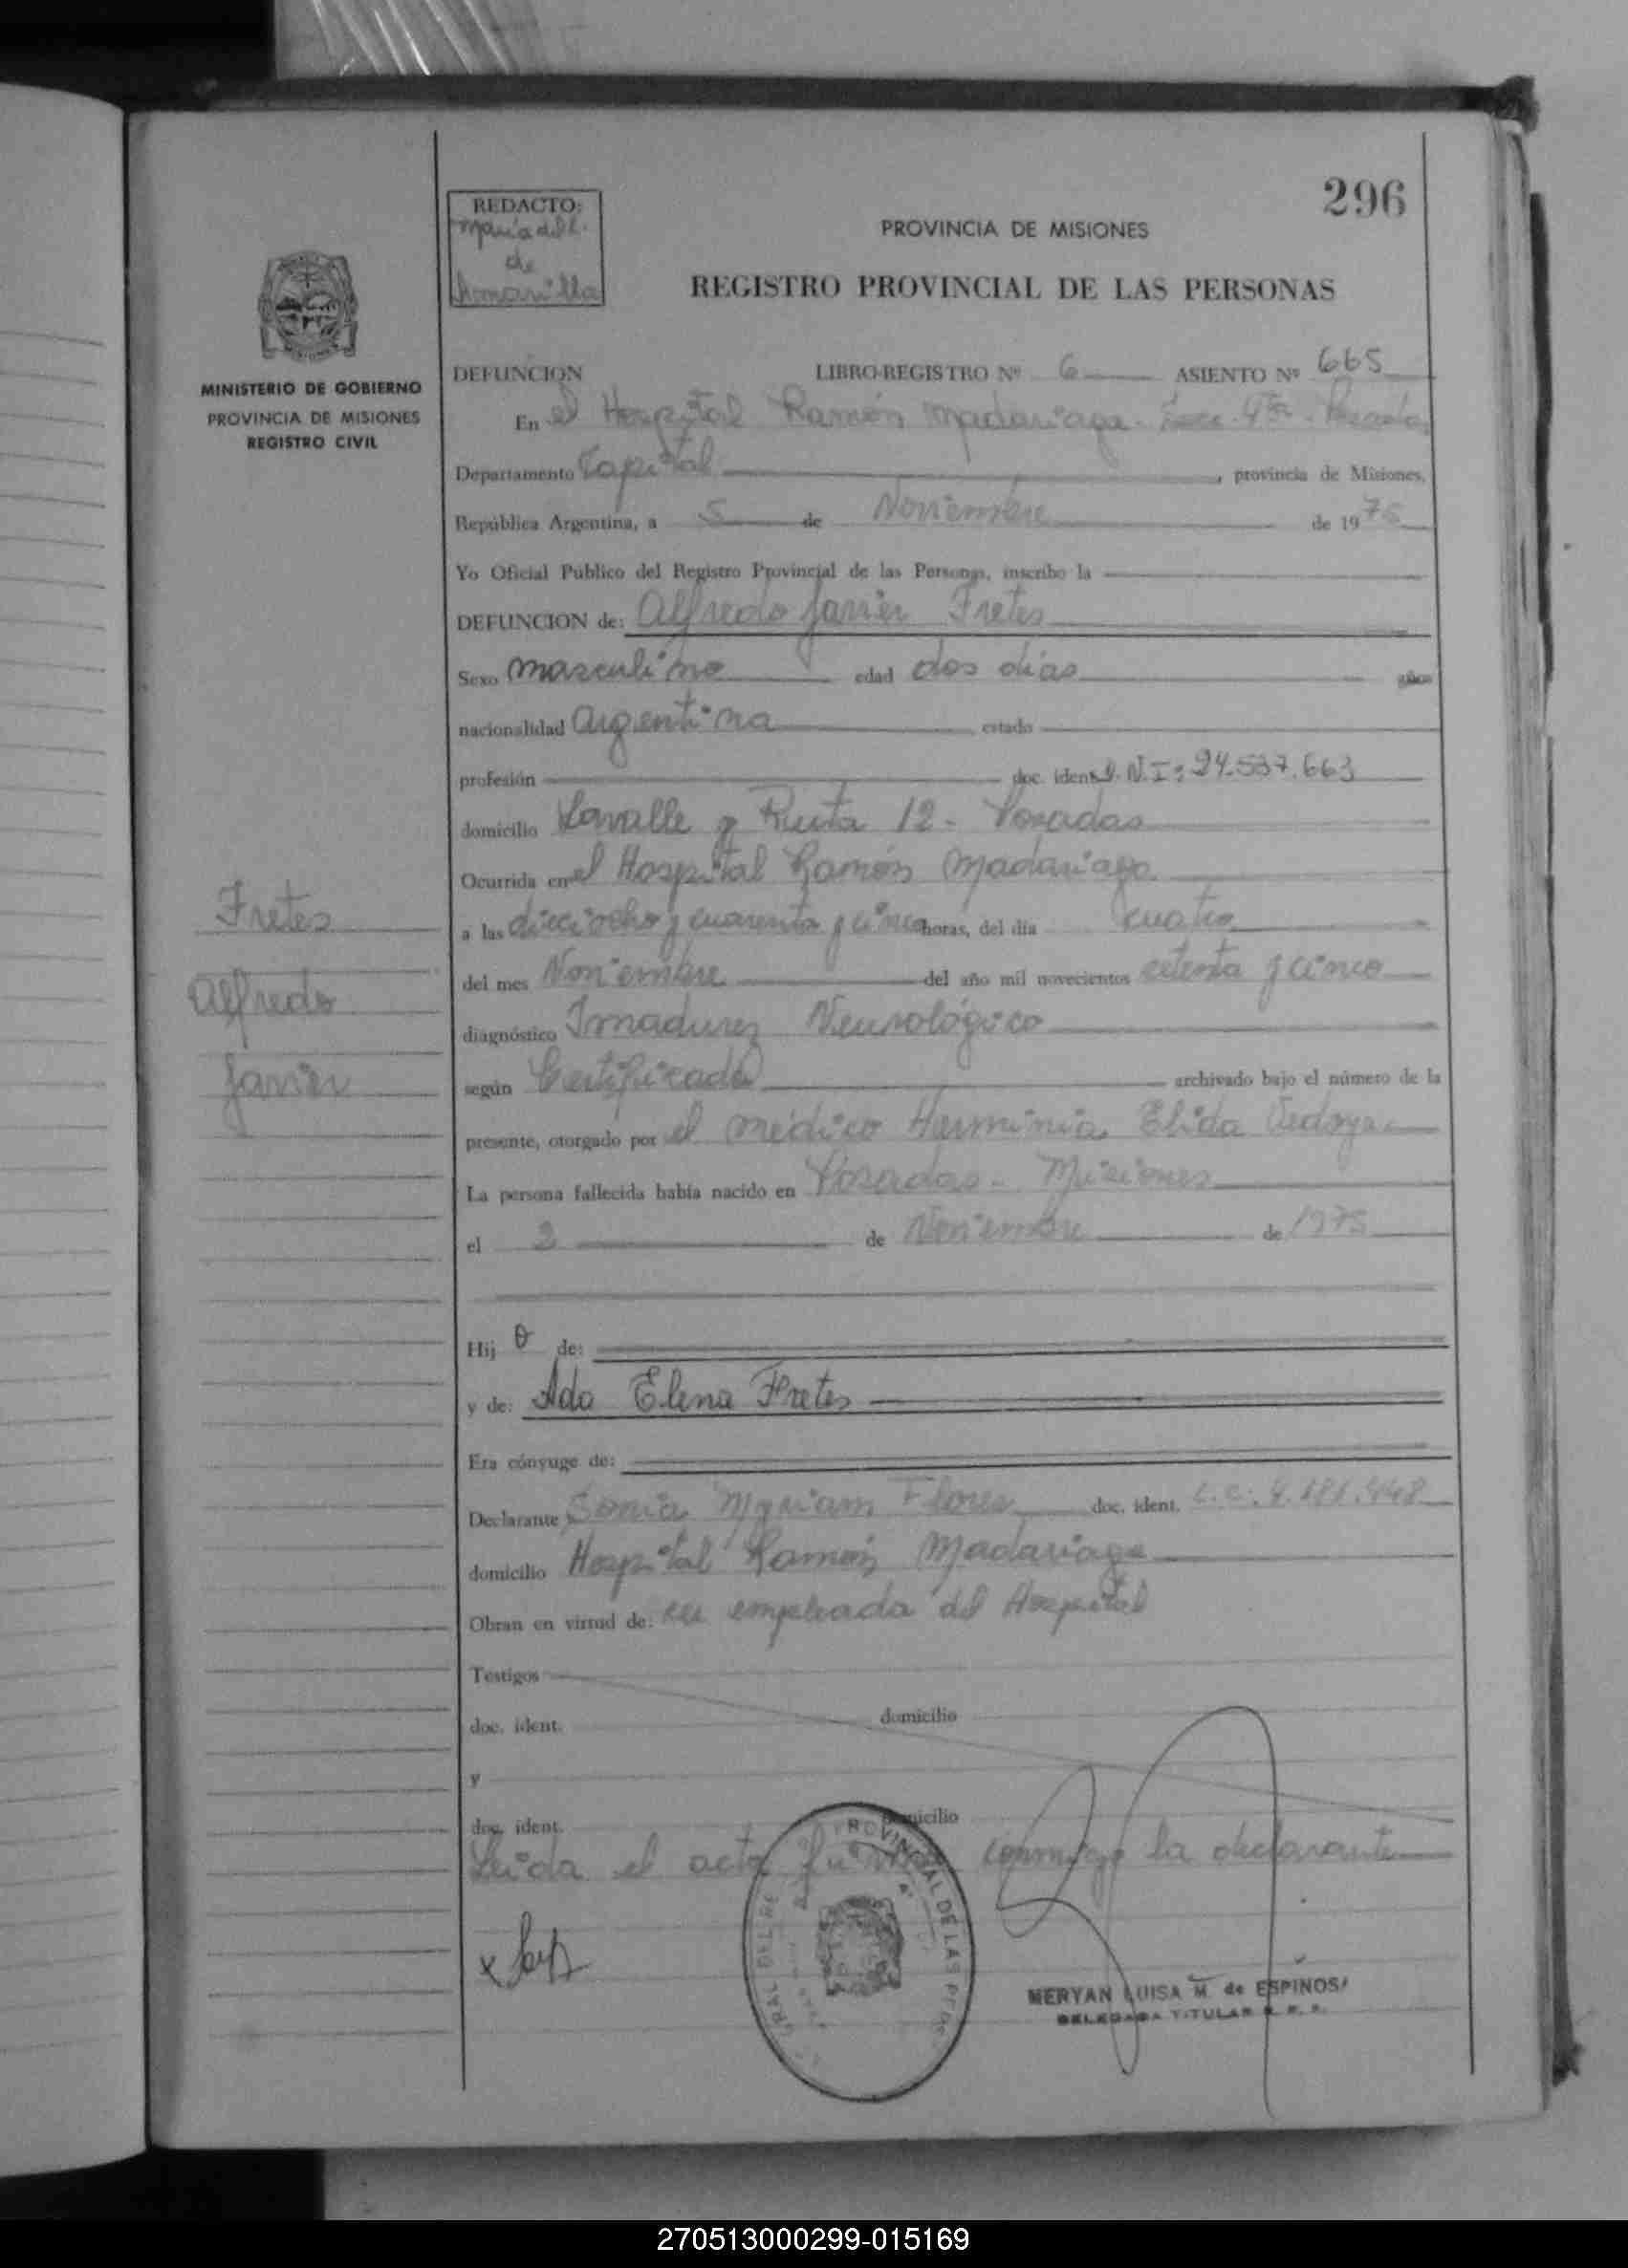 296
REDACTO:
Maria del C.
de
PROVINCIA DE MISIONES
REGISTRO PROVINCIAL DE LAS PERSONAS
MINISTERIO DE GOBIERNO
PROVINCIA DE MISIONES
REGISTRO CIVIL
DEFUNCION LIBRO-REGISTRO Nº 6 ASIENTO Nº 665
En el Hospital Ramón Madariaga - Secc. 4ta - Posadas
Departamento Capital, provincia de Misiones,
República Argentina, a 5 de Noviembre de 1975
Yo Oficial Público del Registro Provincial de las Personas, inscribo la
DEFUNCION de: Alfredo Javier Fretes
Sexo masculino edad dos dias años
nacionalidad Argentina estado
profesión doc. ident. D.N.I: 24.537.663
domicilio Lavalle y Ruta 12 - Posadas
Ocurrida en el Hospital Ramón Madariaga
a las dieciocho y cuarenta y cinco horas, del día cuatro
del mes Noviembre del año mil novecientos setenta y cinco
diagnóstico Inmadurez Neurológico
según Certificado archivado bajo el número de la
presente, otorgado por el médico Herminia Elida Vedoya
La persona fallecida había nacido en Posadas - Misiones
el 2 de Noviembre de 1975
Fretes
Alfredo
Javier
Hij o de:
y de: Ada Elena Fretes
Era cónyuge de:
Declarante Sonia Myriam Flores doc. ident. L.C. 4.181.448
domicilio Hospital Ramón Madariaga
Obran en virtud de: ser empleada del Hospital
Testigos
doc. ident. domicilio
y
doc. ident. domicilio
Leida el acta firma conmigo la declarante
PROVINCIAL DE LAS PERS
GRAL DEL RE
MERYAN LUISA M. de ESPINOS
DELEGADA TITULAR R. P. P.
270513000299-015169